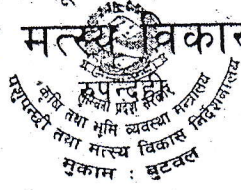 मत्स्य विकास
रुपन्देही
लुम्बिनी प्रदेश सरकार
कृषि तथा भूमि व्यवस्था मन्त्रालय
पशुपन्छी तथा मत्स्य विकास निर्देशनालय
मुकाम : बुटवल